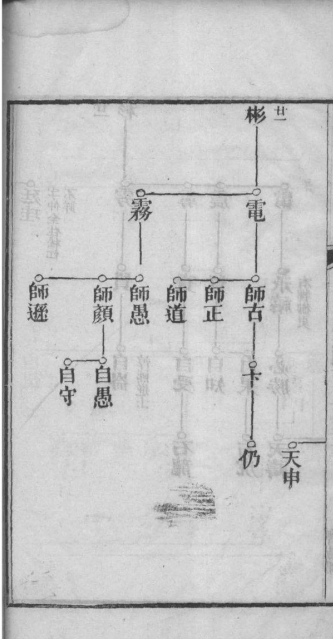 廿一
彬
電
霧
師古
師正
師道
師愚
師顏
師遜
卞
自愚
自守
仍
天申